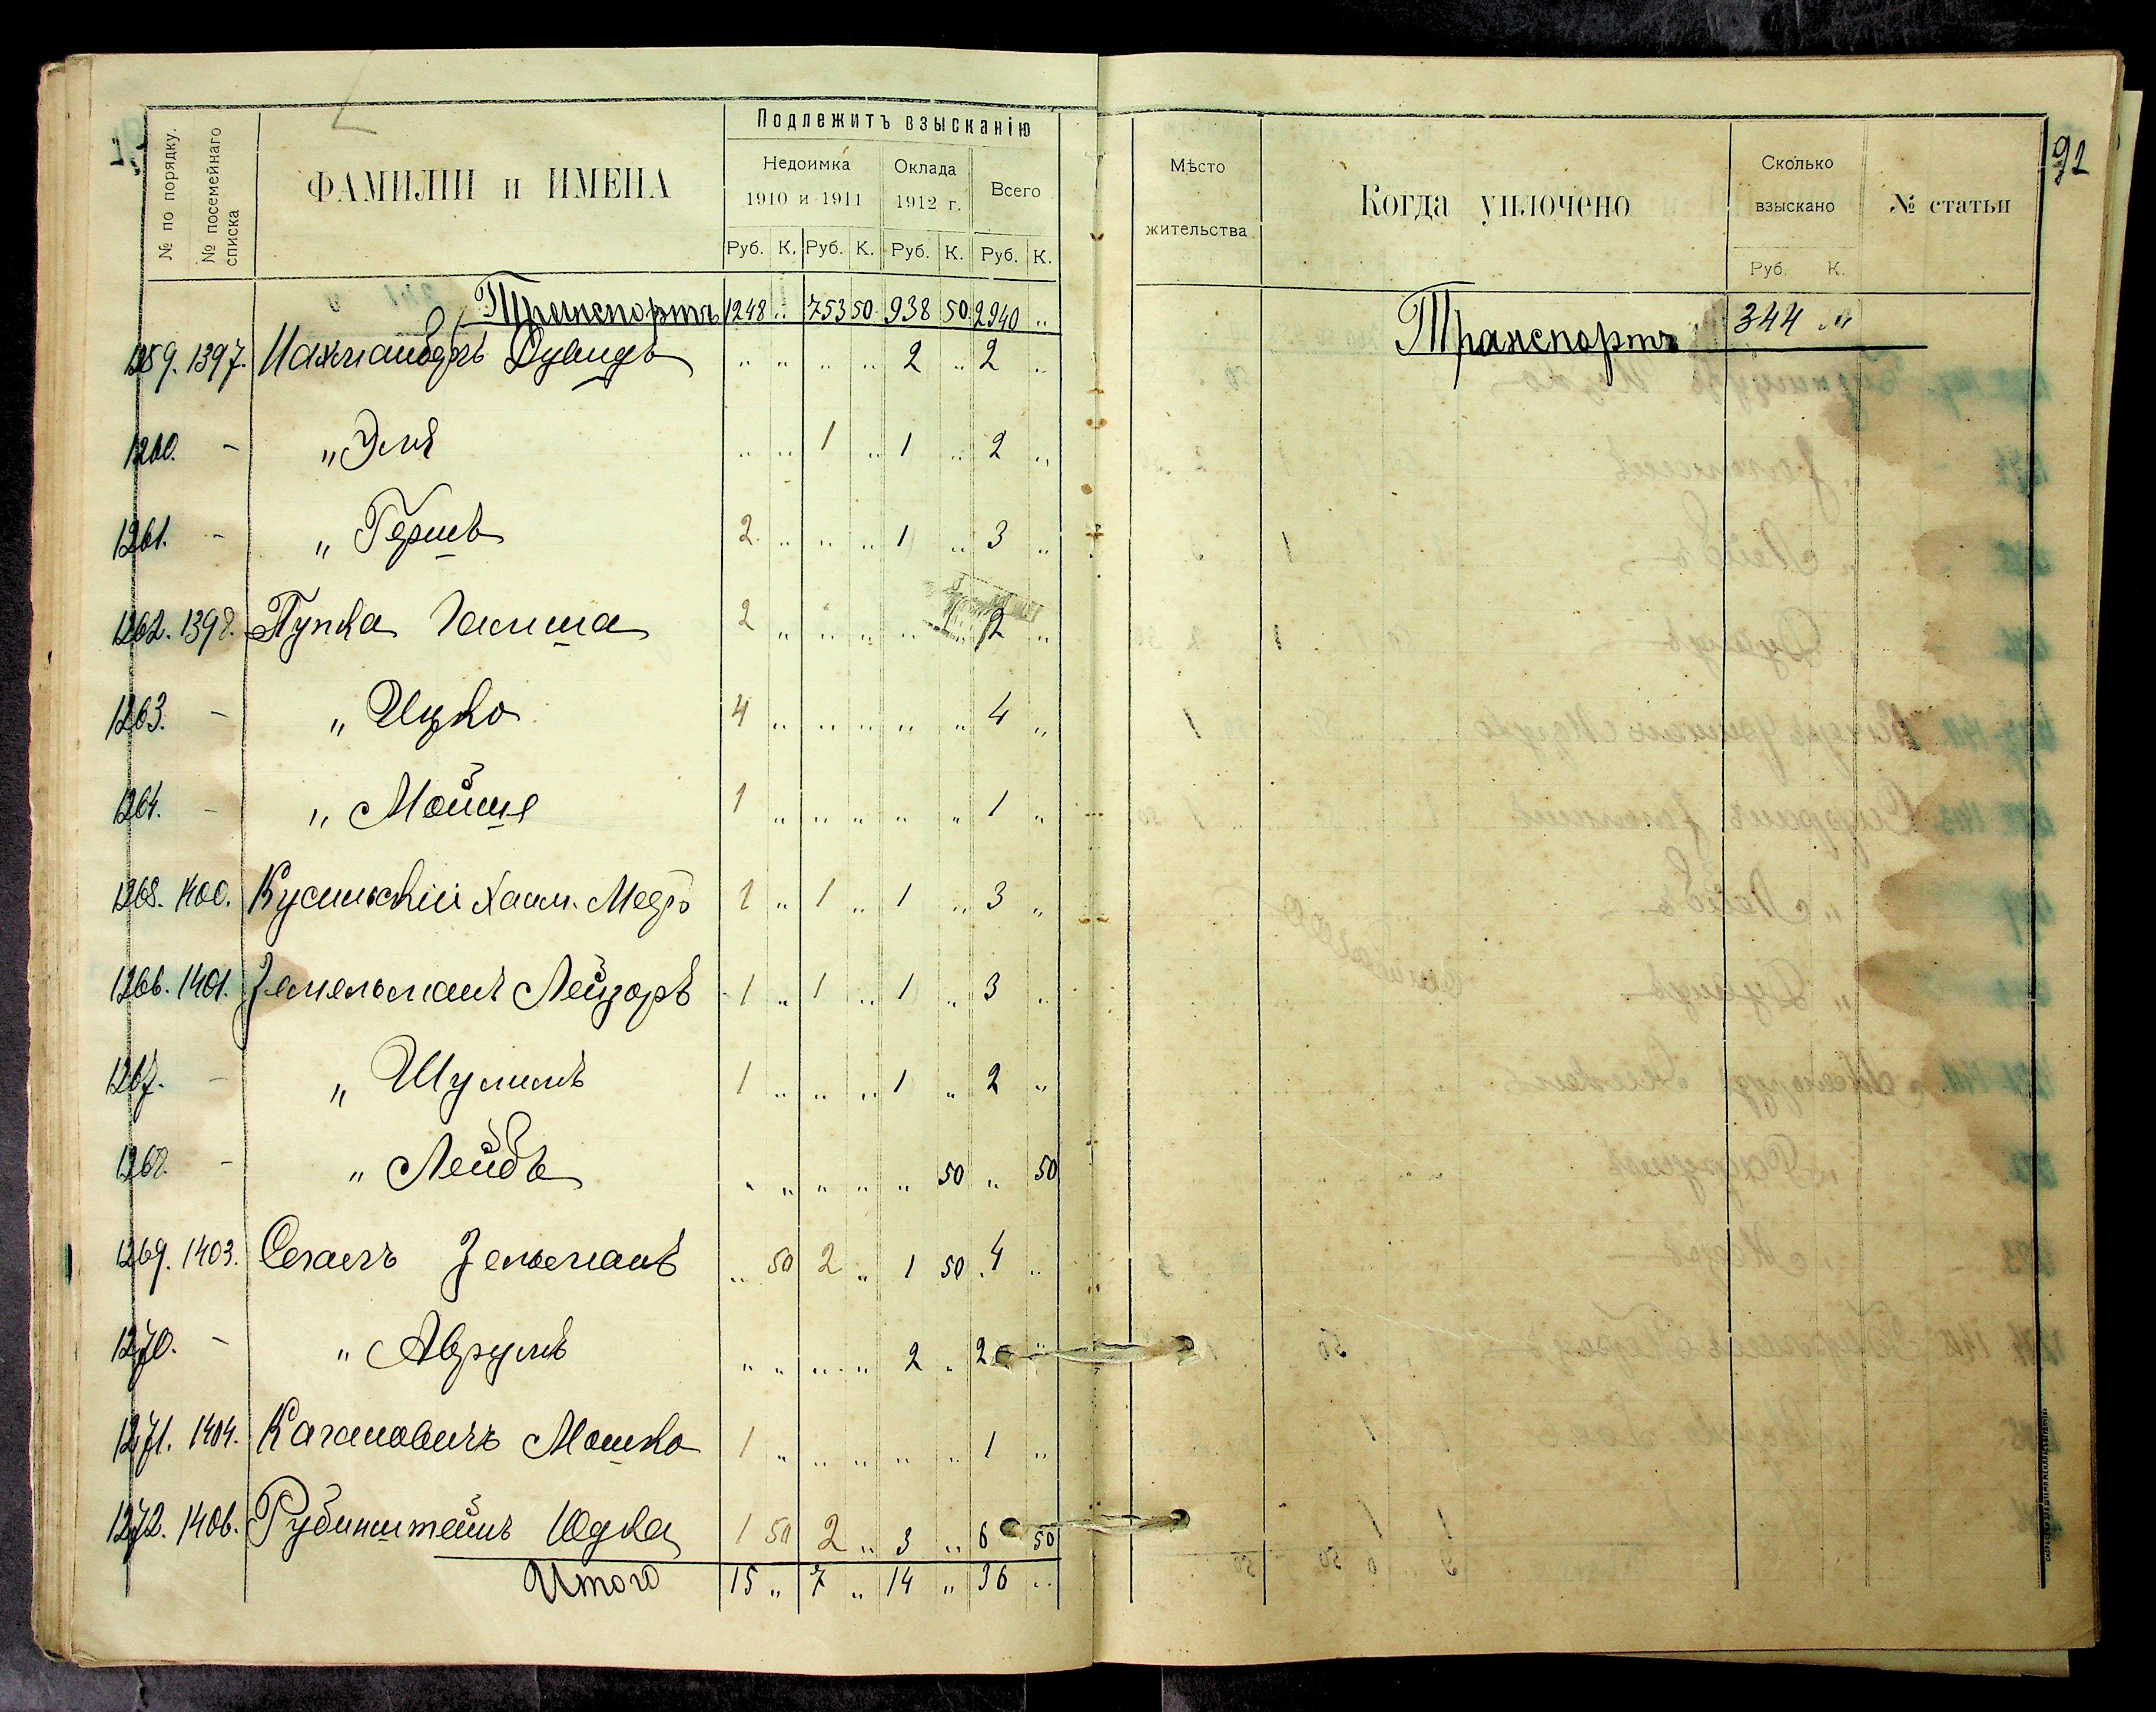 № по порядку.
№ посемейнаго списка
ФАМИЛІИ и ИМЕНА
Подлежитъ взысканію
Недоимка 1910 и 1911
Оклада 1912 г.
Всего
Руб. К. Руб. К. Руб. К. Руб. К.
Транспортъ 1248 „ 753 50 938 50 2940 „
1259. 1397. Нахманбергъ Дувидъ „ „ „ „ 2 „ 2 „
1260. - „ Эля „ „ 1 „ 1 „ 2 „
1261. - „ Гершъ 2 „ „ „ 1 „ 3 „
1262. 1398. Пупка 2 „ „ „ „ „ 2 „
1263. - „ Ицко 4 „ „ „ „ „ 4 „
1264. - „ Мойше 1 „ „ „ „ „ 1 „
1265. 1400. Хаим. Мееръ 1 „ 1 „ 1 „ 3 „
1266. 1401. Лейзоръ 1 „ 1 „ 1 „ 3 „
1267. - „ Шулимъ 1 „ „ „ 1 „ 2 „
1268. - „ Лейбъ „ „ „ „ „ 50 „ 50
1269. 1403. Зельманъ „ 50 2 „ 1 50 4 „
1270. - „ Аврумъ „ „ „ „ 2 „ 2 „
1271. 1404. Кагановичъ Мошко 1 „ „ „ „ „ 1 „
1272. 1406. Рубинштейнъ Юдка 1 50 2 „ 3 „ 6 50
Итого 15 „ 7 „ 14 „ 36 „
92
Мѣсто жительства
Когда уплочено
Сколько взыскано
№ статьи
Руб. К.
Транспортъ 344 „